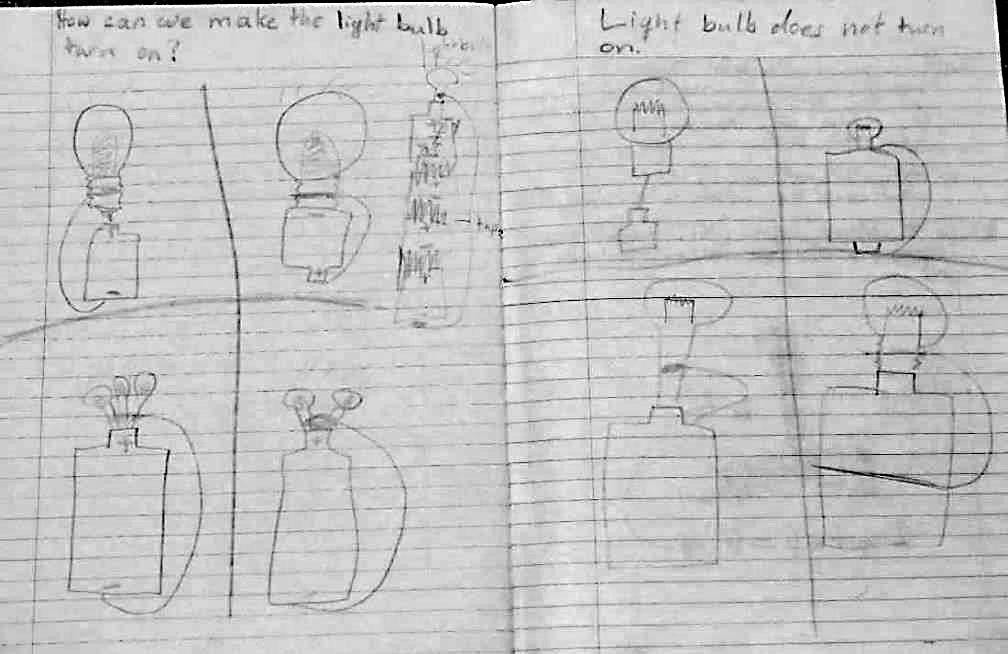 How can we make the light bulb
turn on?
tape
Light bulb does not turn
on.